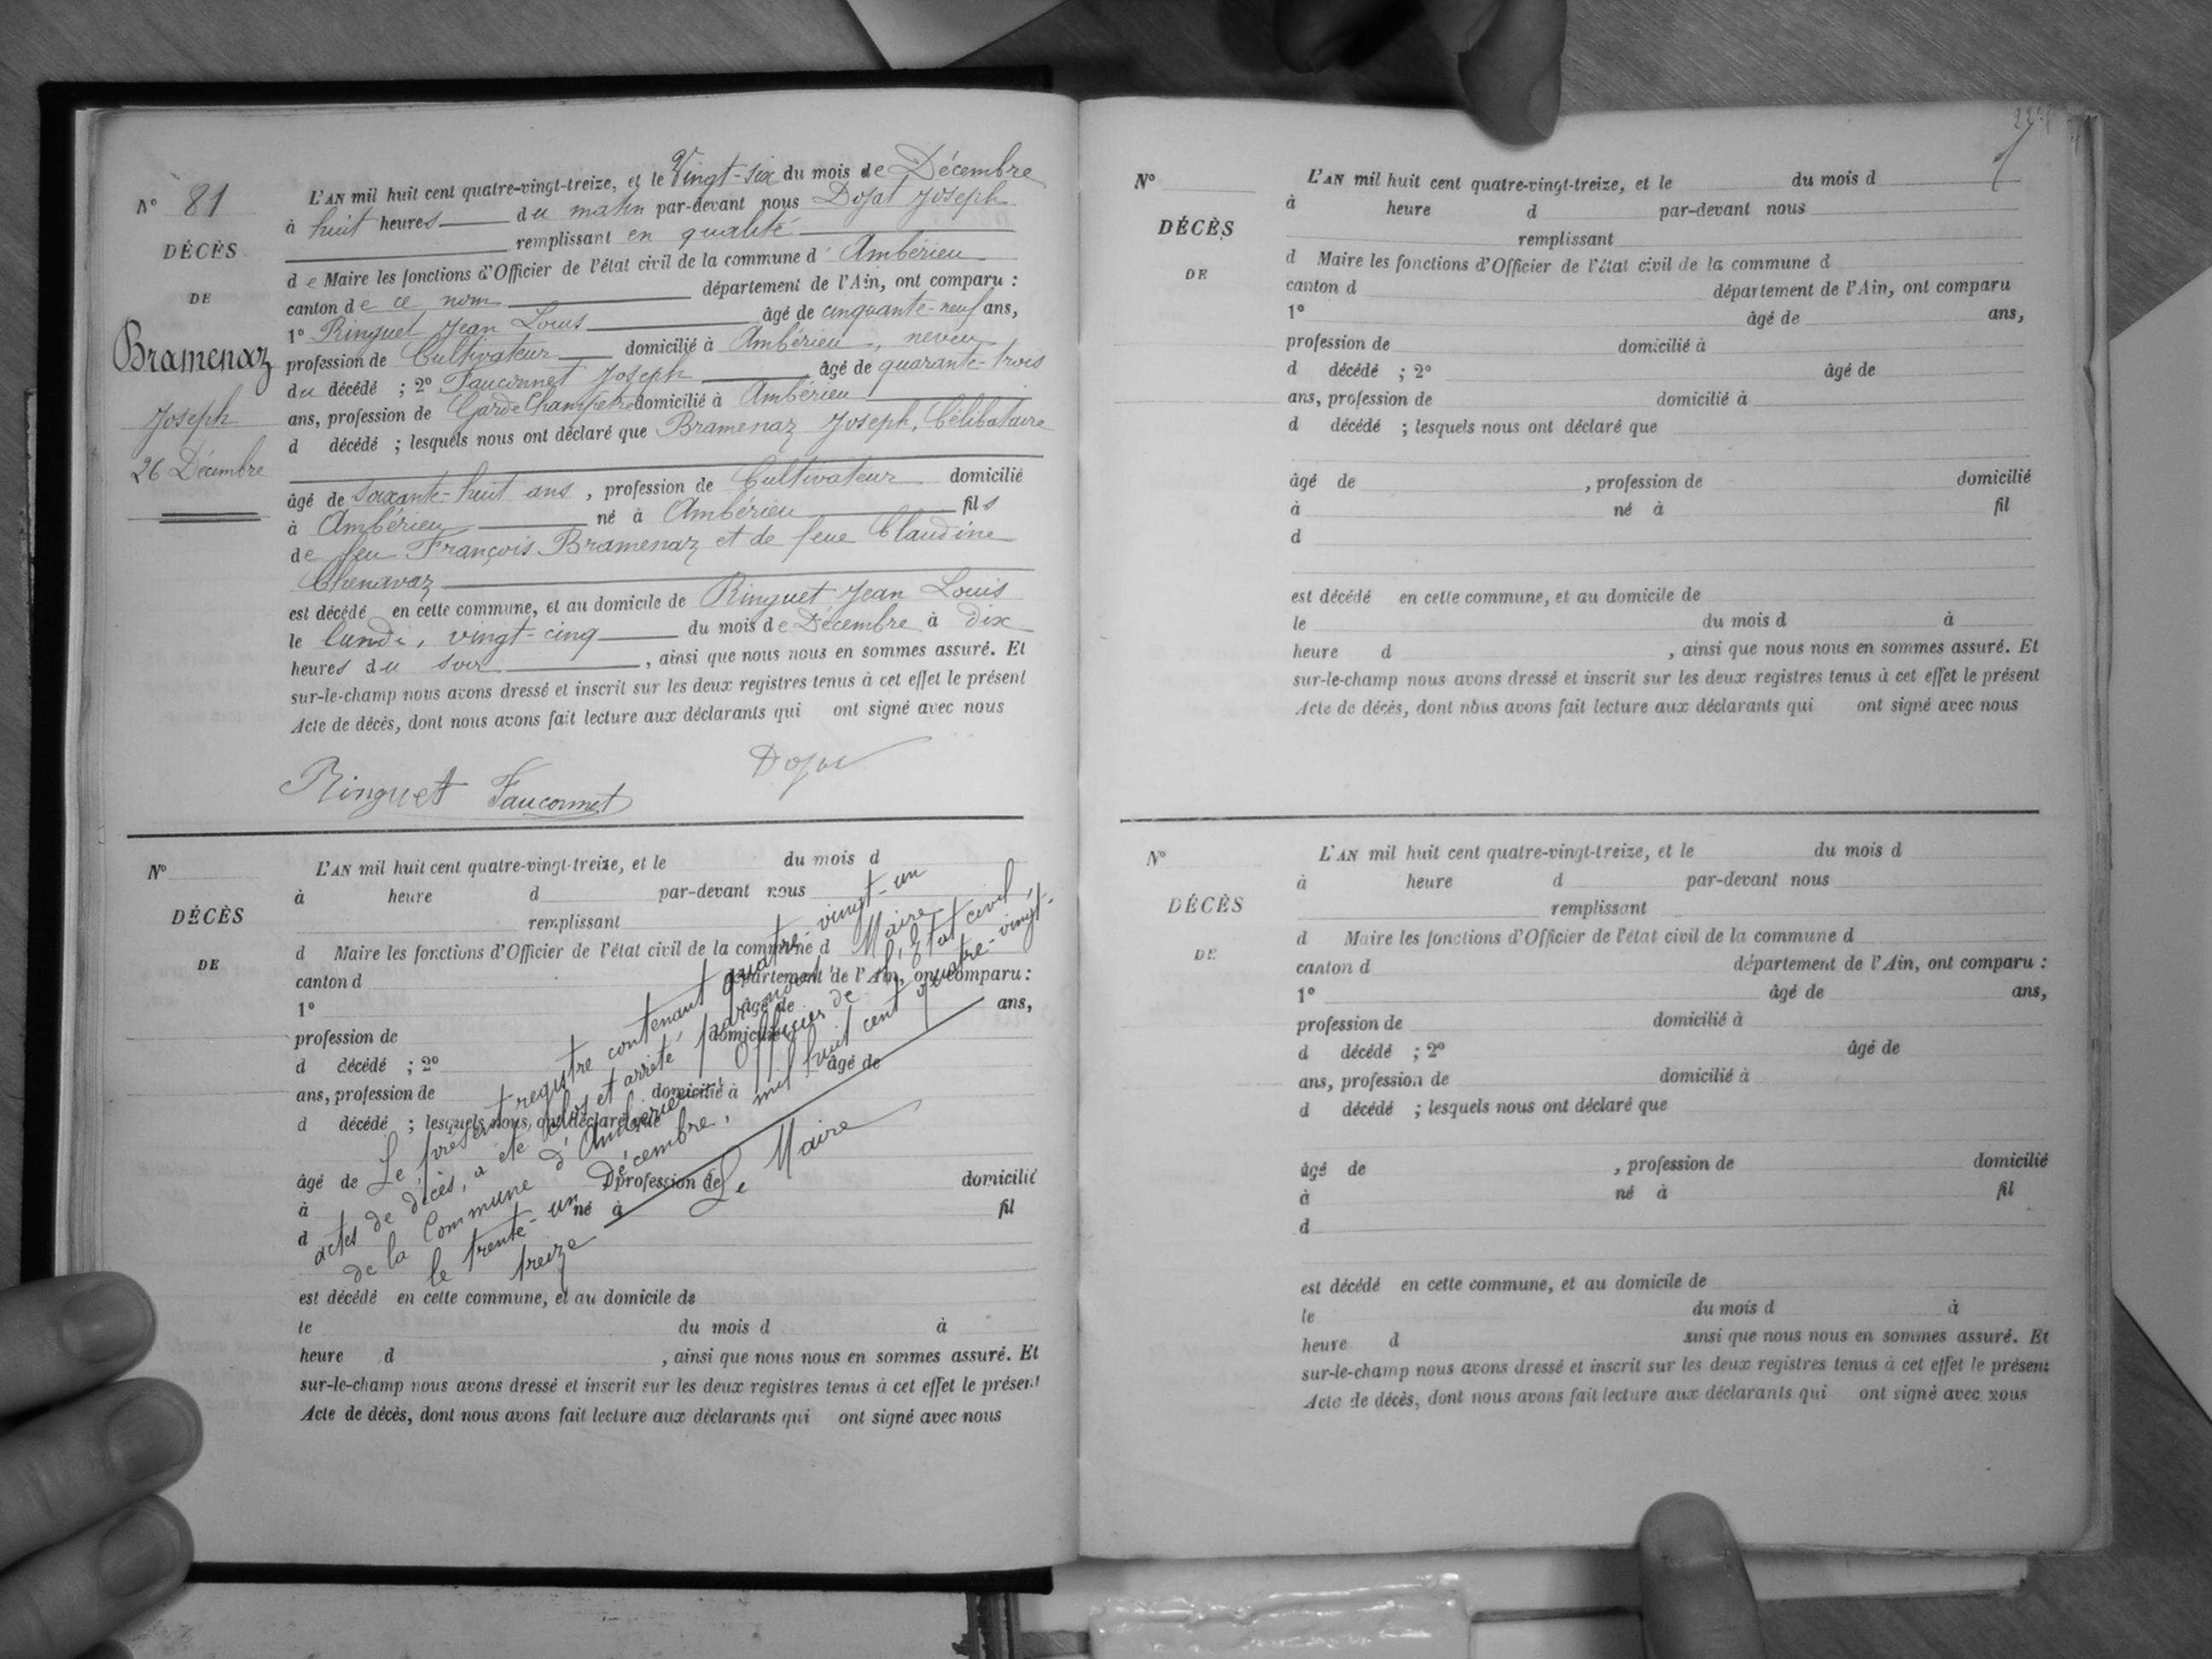 N° 81
DÉCÈS
DE
Bramenaz
Joseph
26 Décembre
L'AN mil huit cent quatre-vingt-treize, et le Vingt-six du mois de Décembre
à huit heures du matin par-devant nous Dojat Joseph
remplissant en qualité
de Maire les fonctions d'Officier de l'état civil de la commune d'Ambérieu
canton de ce nom département de l'Ain, ont comparu :
1° Ringuet Jean Louis âgé de cinquante-neuf ans,
profession de Cultivateur domicilié à Ambérieu, neveu
du décédé ; 2° Fauconnet Joseph âgé de quarante-trois
ans, profession de Garde Champetre domicilié à Ambérieu
d décédé ; lesquels nous ont déclaré que Bramenaz Joseph, Célibataire
âgé de soixante-huit ans, profession de Cultivateur domicilié
à Ambérieu né à Ambérieu fils
de feu François Bramenaz et de feue Claudine
Chenavaz
est décédé en cette commune, et au domicile de Ringuet Jean Louis
le lundi, vingt-cinq du mois de Décembre à dix
heures du soir, ainsi que nous nous en sommes assuré. Et
sur-le-champ nous avons dressé et inscrit sur les deux registres tenus à cet effet le présent
Acte de décès, dont nous avons fait lecture aux déclarants qui ont signé avec nous
Ringuet Fauconnet
N°
DÉCÈS
DE
L'AN mil huit cent quatre-vingt-treize, et le du mois d
à heure d par-devant nous
remplissant
d Maire les fonctions d'Officier de l'état civil de la commune d
canton d département de l'Ain, ont comparu :
1° âgé de ans,
profession de domicilié à
d décédé ; 2° âgé de
ans, profession de domicilié à
d décédé ; lesquels nous ont déclaré que
âgé de , profession de domicilié
à né à fil
d
est décédé en cette commune, et au domicile de
le du mois d à
heure d , ainsi que nous nous en sommes assuré. Et
sur-le-champ nous avons dressé et inscrit sur les deux registres tenus à cet effet le présent
Acte de décès, dont nous avons fait lecture aux déclarants qui ont signé avec nous
Le présent registre contenant quatre-vingt-un
actes de décès, a été clos et arrêté par nous Maire
de la Commune d'Ambérieu, Officier de l'Etat civil,
le trente-un Décembre, mil huit cent quatre-vingt-
treize
Le Maire
N°
DÉCÈS
DE
L'AN mil huit cent quatre-vingt-treize, et le du mois d
à heure d par-devant nous
remplissant
d Maire les fonctions d'Officier de l'état civil de la commune d
canton d département de l'Ain, ont comparu
1° âgé de ans,
profession de domicilié à
d décédé ; 2° âgé de
ans, profession de domicilié à
d décédé ; lesquels nous ont déclaré que
âgé de , profession de domicilié
à né à fil
d
est décédé en cette commune, et au domicile de
le du mois d à
heure d , ainsi que nous nous en sommes assuré. Et
sur-le-champ nous avons dressé et inscrit sur les deux registres tenus à cet effet le présent
Acte de décès, dont nous avons fait lecture aux déclarants qui ont signé avec nous
N°
DÉCÈS
DE
L'AN mil huit cent quatre-vingt-treize, et le du mois d
à heure d par-devant nous
remplissant
d Maire les fonctions d'Officier de l'état civil de la commune d
canton d département de l'Ain, ont comparu :
1° âgé de ans,
profession de domicilié à
d décédé ; 2° âgé de
ans, profession de domicilié à
d décédé ; lesquels nous ont déclaré que
âgé de , profession de domicilié
à né à fil
d
est décédé en cette commune, et au domicile de
le du mois d à
heure d ainsi que nous nous en sommes assuré. Et
sur-le-champ nous avons dressé et inscrit sur les deux registres tenus à cet effet le présent
Acte de décès, dont nous avons fait lecture aux déclarants qui ont signé avec nous